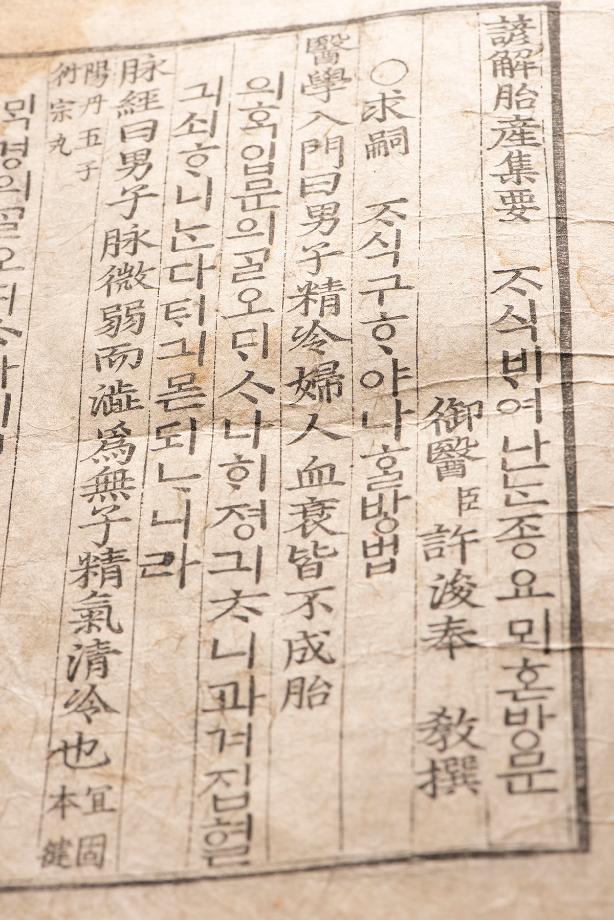 諺解胎産集要 ᄌᆞ식ᄇᆡ여난ᄂᆞᆫ종요뫼혼방문
御醫臣許浚奉 敎撰
○求嗣 ᄌᆞ식구ᄒᆞ야나ᄒᆞᆯ방법
醫學入門曰男子精冷婦人血衰皆不成胎
의ᄒᆞᆨ입문의ᄀᆞᆯ오ᄃᆡᄉᆞ나ᄒᆡ졍긔ᄎᆞ니과겨집혈
긔쇠ᄒᆞ니ᄂᆞᆫ다ᄐᆡ긔몯되ᄂᆞ니라
脉經曰男子脉微弱而澁爲無子精氣清冷也宜固本健
陽丹五子衍宗丸
ᄆᆡᆨ경의ᄀᆞᆯ오ᄃᆡᄉᆞ나